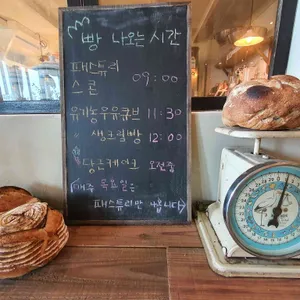 빵 나오는 시간
패스츄리
스콘 09:00
유기농우유큐브 11:30
생크림빵 12:00
당근케이크 오전중
매주 목요일은
패스츄리만 나옵니다